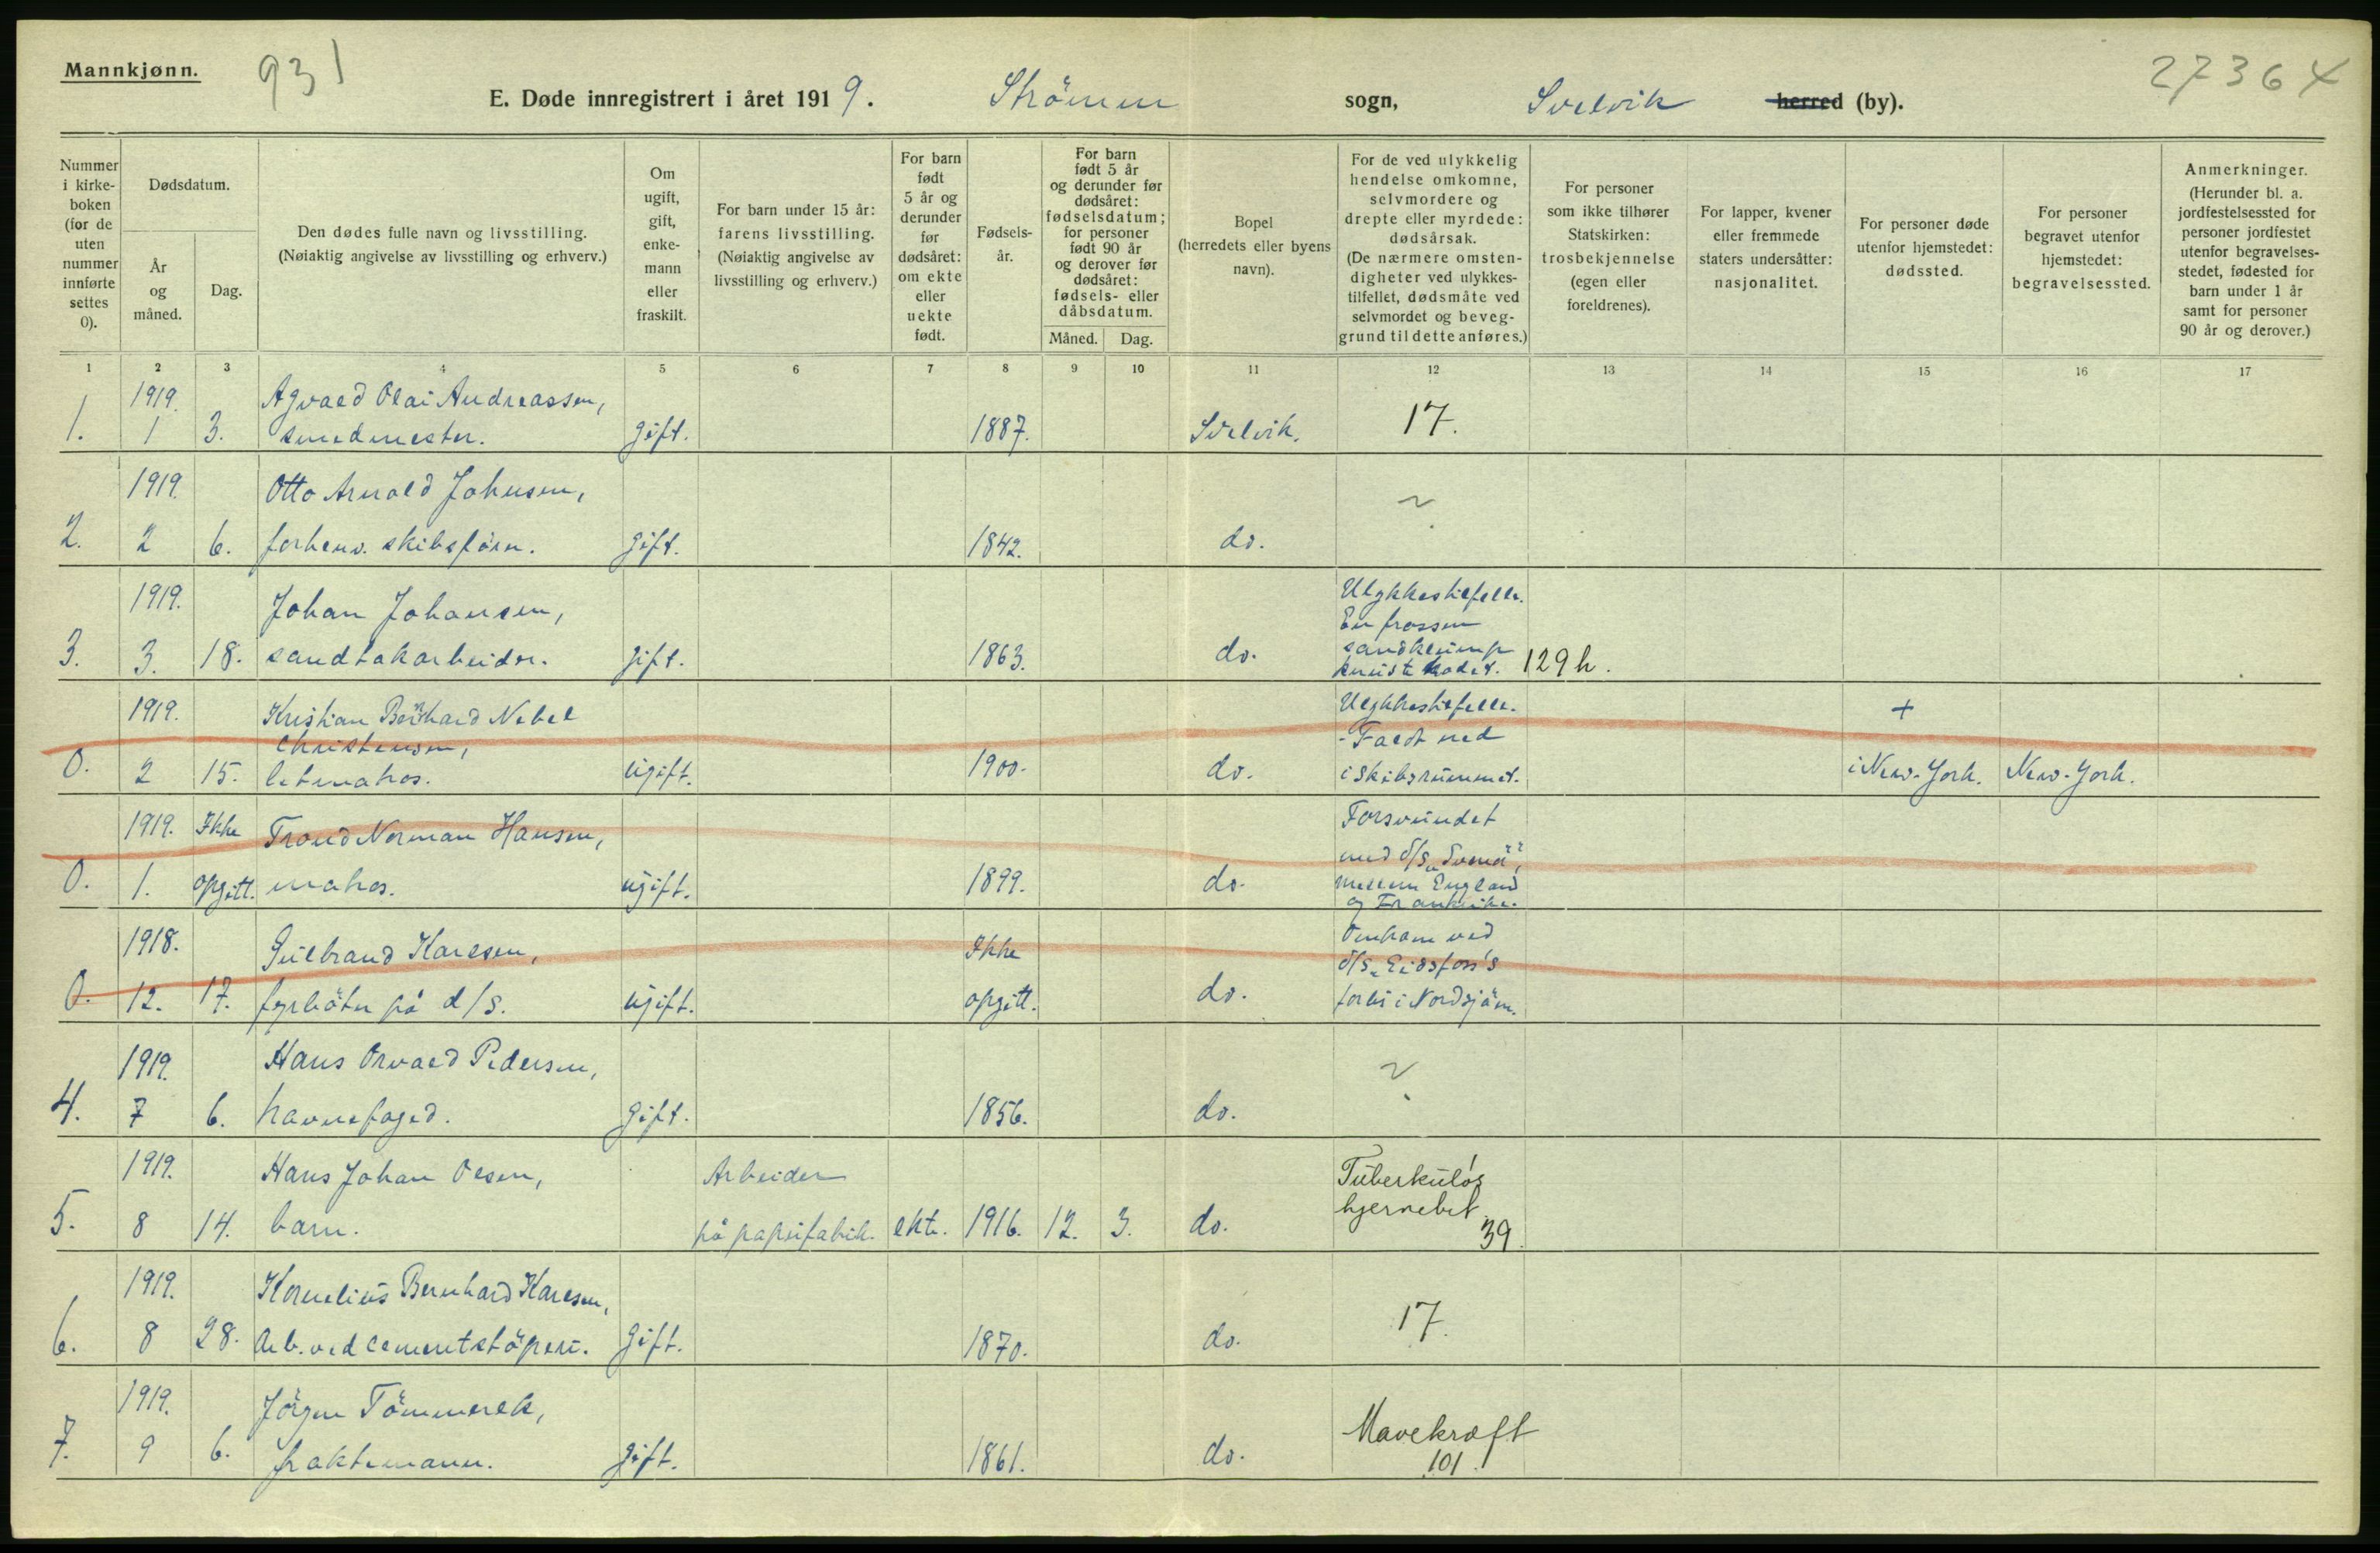 Mannkjønn.
931
27364
E. Døde innregistrert i året 1919. Strömm sogn, Svelvik herred (by).
Nummer i kirke-boken (for de uten nummer innførte settes 0).
Dødsdatum.
År og måned.
Dag.
Den dødes fulle navn og livsstilling.
(Nøiaktig angivelse av livsstilling og erhverv.)
Om ugift, gift, enke-mann eller fraskilt.
For barn under 15 år: farens livsstilling.
(Nøiaktig angivelse av livsstilling og erhverv.)
For barn født 5 år og derunder før dødsåret: om ekte eller uekte født.
Fødsels-år.
For barn født 5 år og derunder før dødsåret: fødselsdatum; for personer født 90 år og derover før dødsåret: fødsels- eller dåbsdatum.
Måned. Dag.
Bopel (herredets eller byens navn).
For de ved ulykkelig hendelse omkomne, selvmordere og drepte eller myrdede: dødsårsak.
(De nærmere omsten-digheter ved ulykkes-tilfellet, dødsmåte ved selvmordet og beveg-grund til dette anføres.)
For personer som ikke tilhører Statskirken: trosbekjennelse (egen eller foreldrenes).
For lapper, kvener eller fremmede staters undersåtter: nasjonalitet.
For personer døde utenfor hjemstedet: dødssted.
For personer begravet utenfor hjemstedet: begravelsessted.
Anmerkninger.
(Herunder bl. a. jordfestelsessted for personer jordfestet utenfor begravelses-stedet, fødested for barn under 1 år samt for personer 90 år og derover.)
1 2 3 4 5 6 7 8 9 10 11 12 13 14 15 16 17
1919. Agvald Olai Andreassen,
1. 1 3. smedmester. gift. 1887. Svelvik. 17.
1919. Otto Arnold Johnsen,
2. 2 6. forhenv. skibsförer. gift. 1842. do.
1919. Johan Johansen, Ulykkestilfelle. En frossen
3. 3. 18. sandtakarbeider. gift. 1863. do. sandklump knuste hodet. 129h.
1919. Kristian Bernhard Nebel Ulykkestilfelle. +
Christensen, - Faldt ned
0. 2 15. letmatros. ugift. 1900. do. i skibsrummet. i New-York. New-York.
1919. Ikke Trond Norman Hansen, Forsvundet
med d/s
0. 1. opgitt. matros. ugift. 1899. do. mellem England og Frankrike.
1918. Gulbrand Karlsen, Ikke Omkom ved
d/s „Eidsfoss's
0. 12. 17. fyrböter på d/s. ugift. opgitt. do. forlis i Nordsjöen.
1919. Hans Orvald Pedersen,
4. 7 6. havnefoged. gift. 1856. do.
1919. Hans Johan Olsen, Arbeider Tuberkuløs
hjernebet.
5. 8 14. barn. på papirfabrik. ekte. 1916. 12. 3. do. 39.
1919. Kornelius Bernhard Karlsen,
6. 8 28. Arb. ved cementstöperi. gift. 1870. do. 17.
1919. Jörgen Tömmerek, Mavekræft
7. 9 6. fraktemann. gift. 1861. do. 101.